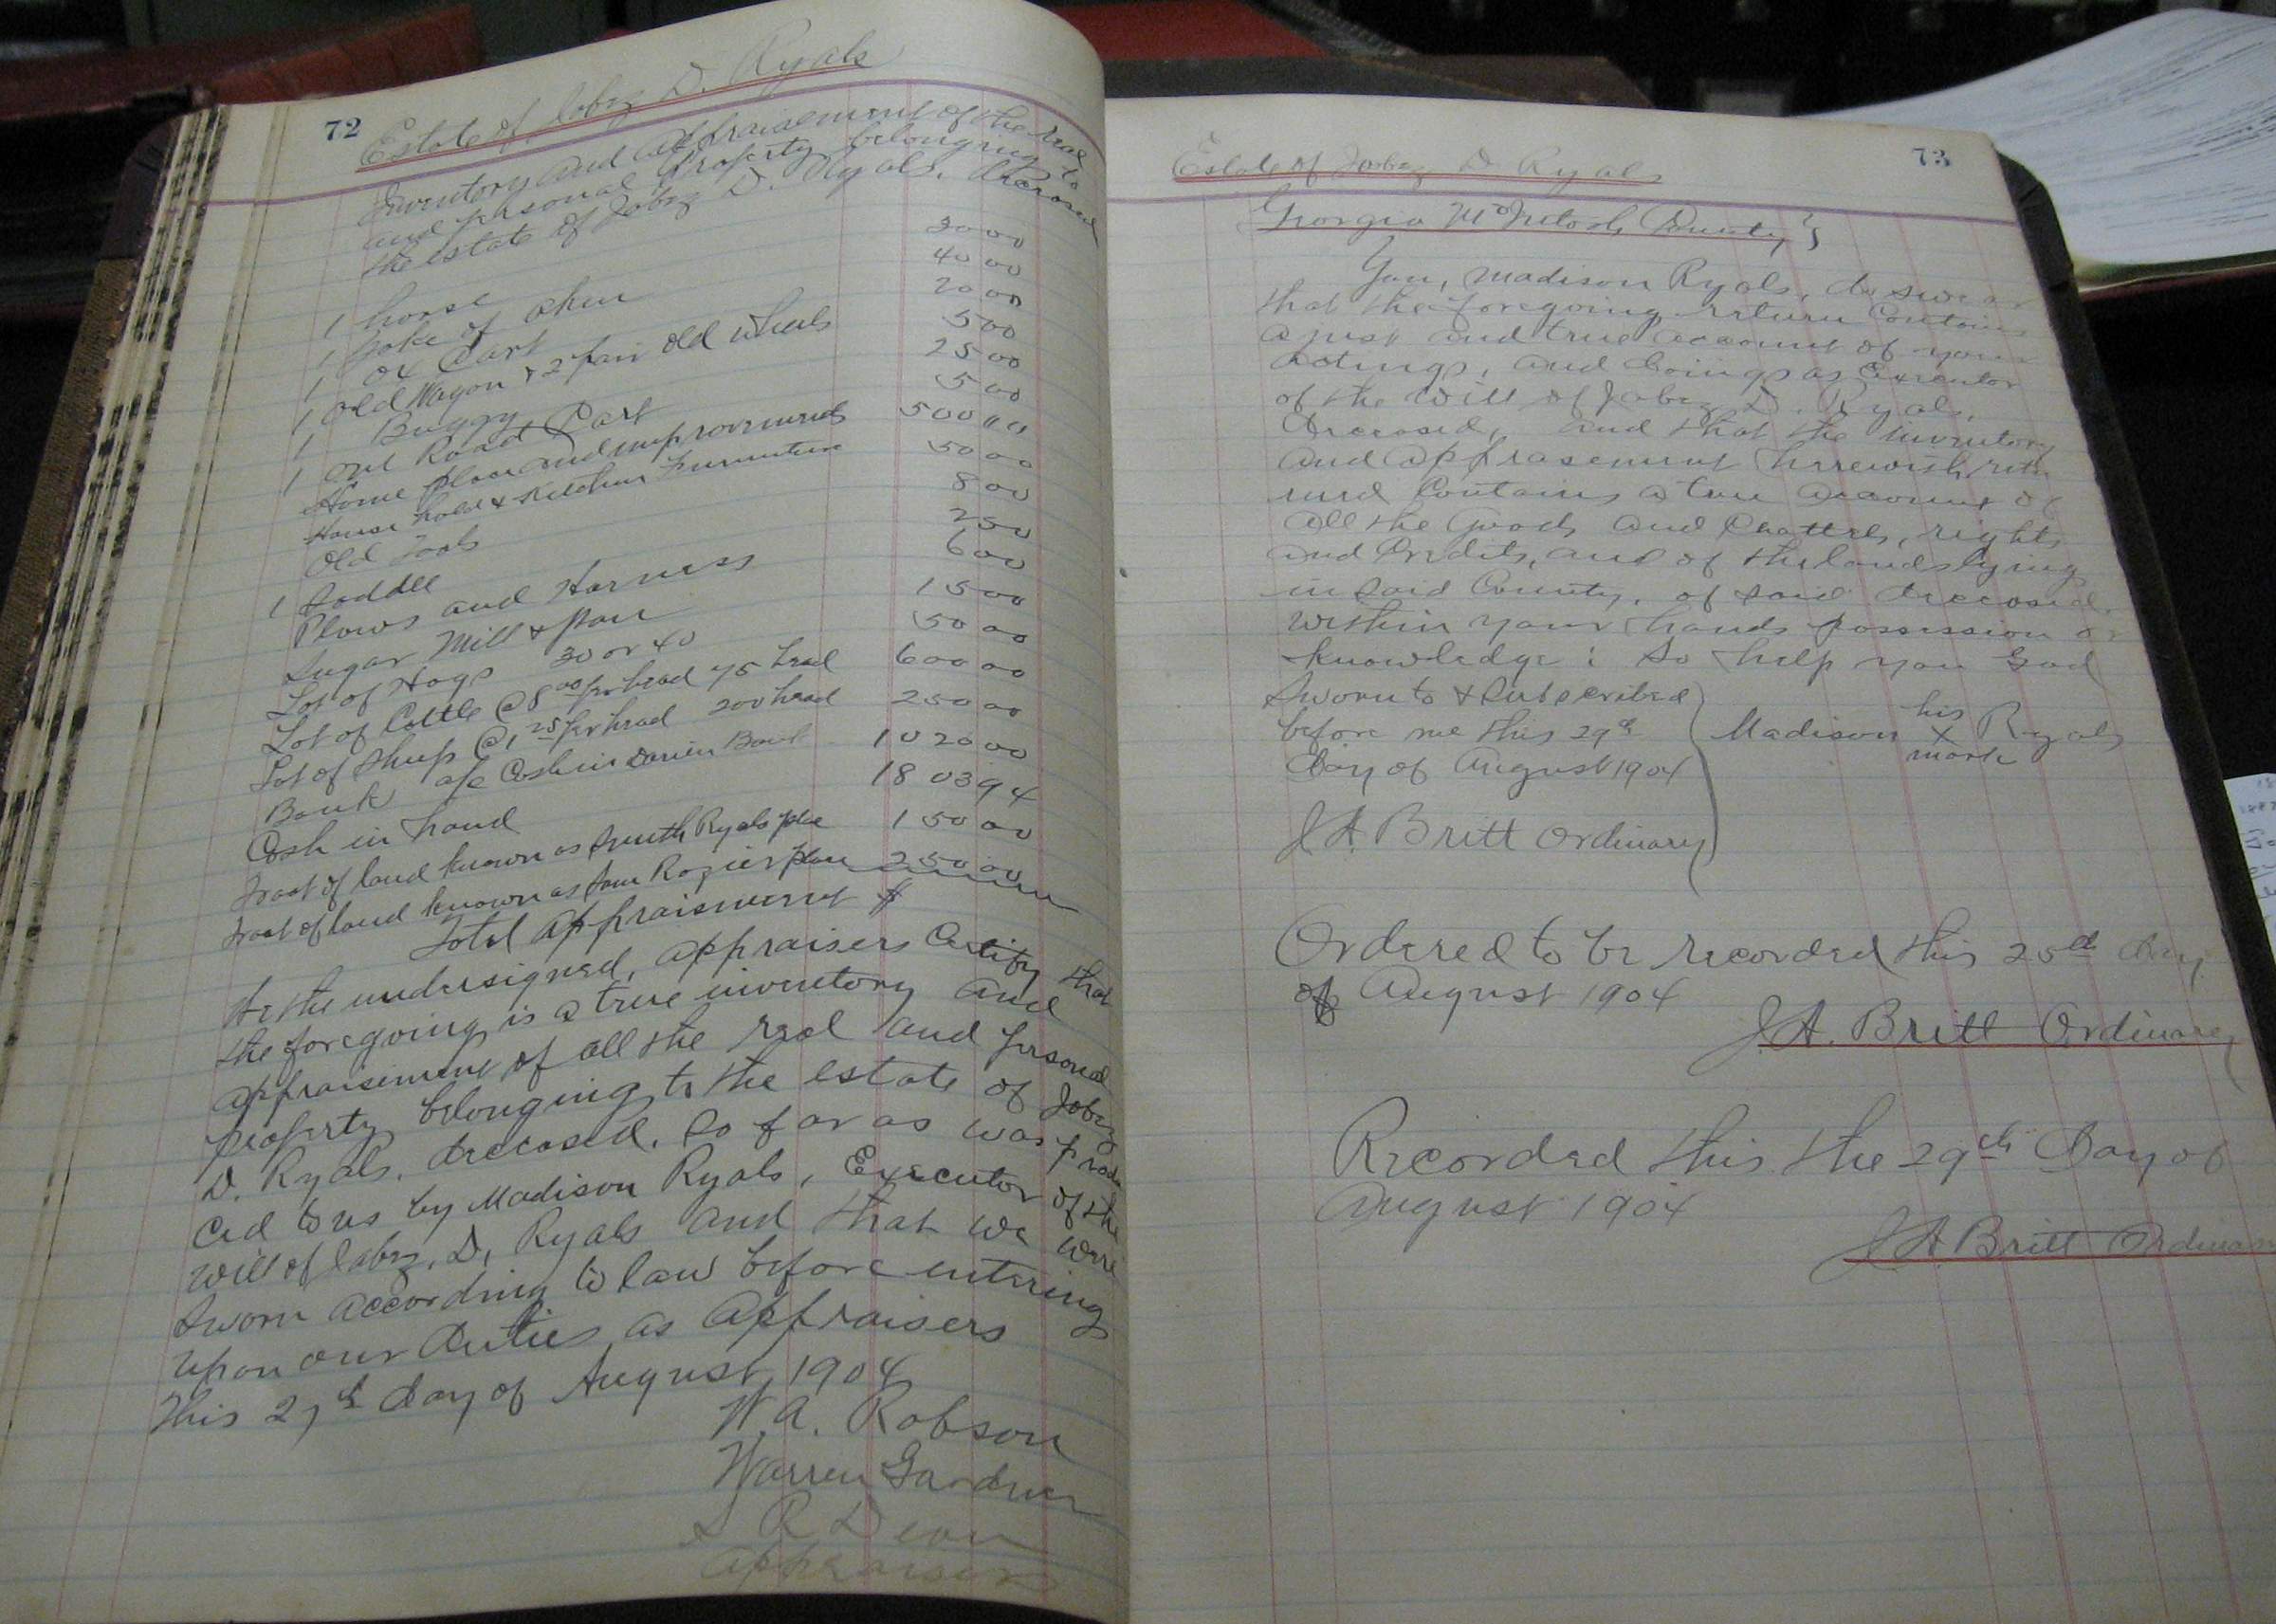 72
Estate of Jabez D. Ryals
Inventory and appraisement of the real
and personal property belonging to
the estate of Jabez D. Ryals. Deceased
1 horse 30 00
1 yoke of oxen 40 00
1 ox Cart 20 00
1 Old Wagon & 2 pair old wheels 5 00
1 Buggy 25 00
1 one Road Cart 5 00
Home place and improvements 500 00
House hold & Kitchen Furniture 50 00
Old Tools 8 00
1 Saddle 2 50
Plows and Harness 6 00
Sugar Mill & pan 15 00
Lot of Hogs 30 or 40 50 00
Lot of Cattle @ 8 00 per head 75 head 600 00
Lot of Sheep @ 1, 25 per head 200 head 250 00
Bank a/c Cash in Darien Bank 1020 00
Cash in hand 1803 94
Tract of land known as Smith Ryals place 150 00
Tract of land known as Tom Rozier place 250 00
Total Appraisement $
We the undersigned, appraisers Certify that
the foregoing is a true inventory and
appraisement of all the real and personal
property belonging to the estate of Jabez
D. Ryals. deceased. So far as was produ
ced to us by Madison Ryals, Executor of the
will of Jabez. D, Ryals and that we were
sworn according to law before entering
upon our duties as appraisers
This 27th day of August 1904
W. A. Robson
Warren Gardner
Dean
appraisers
73
Estate of Jabez D Ryals
Georgia McIntosh County}
You, Madison Ryals, do swear
that the foregoing return Contains
a just and true account of your
actings, and doings as Executor
of the Will of Jabez D. Ryals,
Deceased, and that the inventory
and appraisement herewith retu
rned Contains a true account of
all the Goods and Chattels, rights
and Credits, and of the lands lying
in said County, of said deceased.
within your hands possession or
knowledge: So help you God
Sworn to & Subscribed
before me this 29th
day of August 1904
Madison his X mark Ryals
J A. Britt Ordinary
Ordered to be recorded this 25th day
of August 1904
J. A. Britt Ordinary
Recorded this the 29th day of
August 1904
J A Britt Ordinary